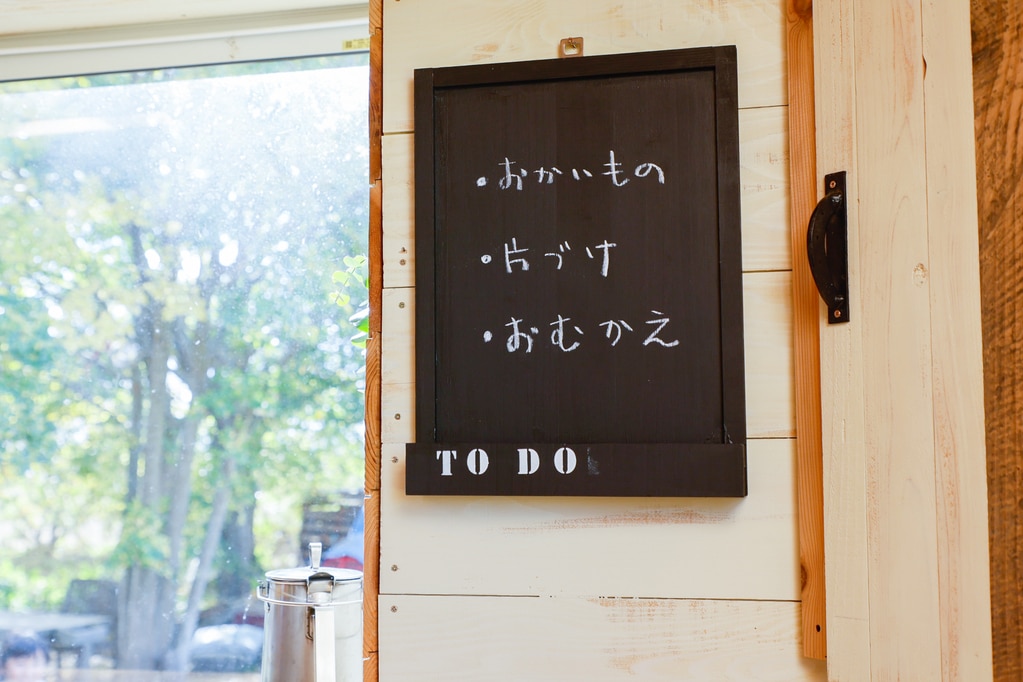 ・おかいもの
・片づけ
・おむかえ
TO DO